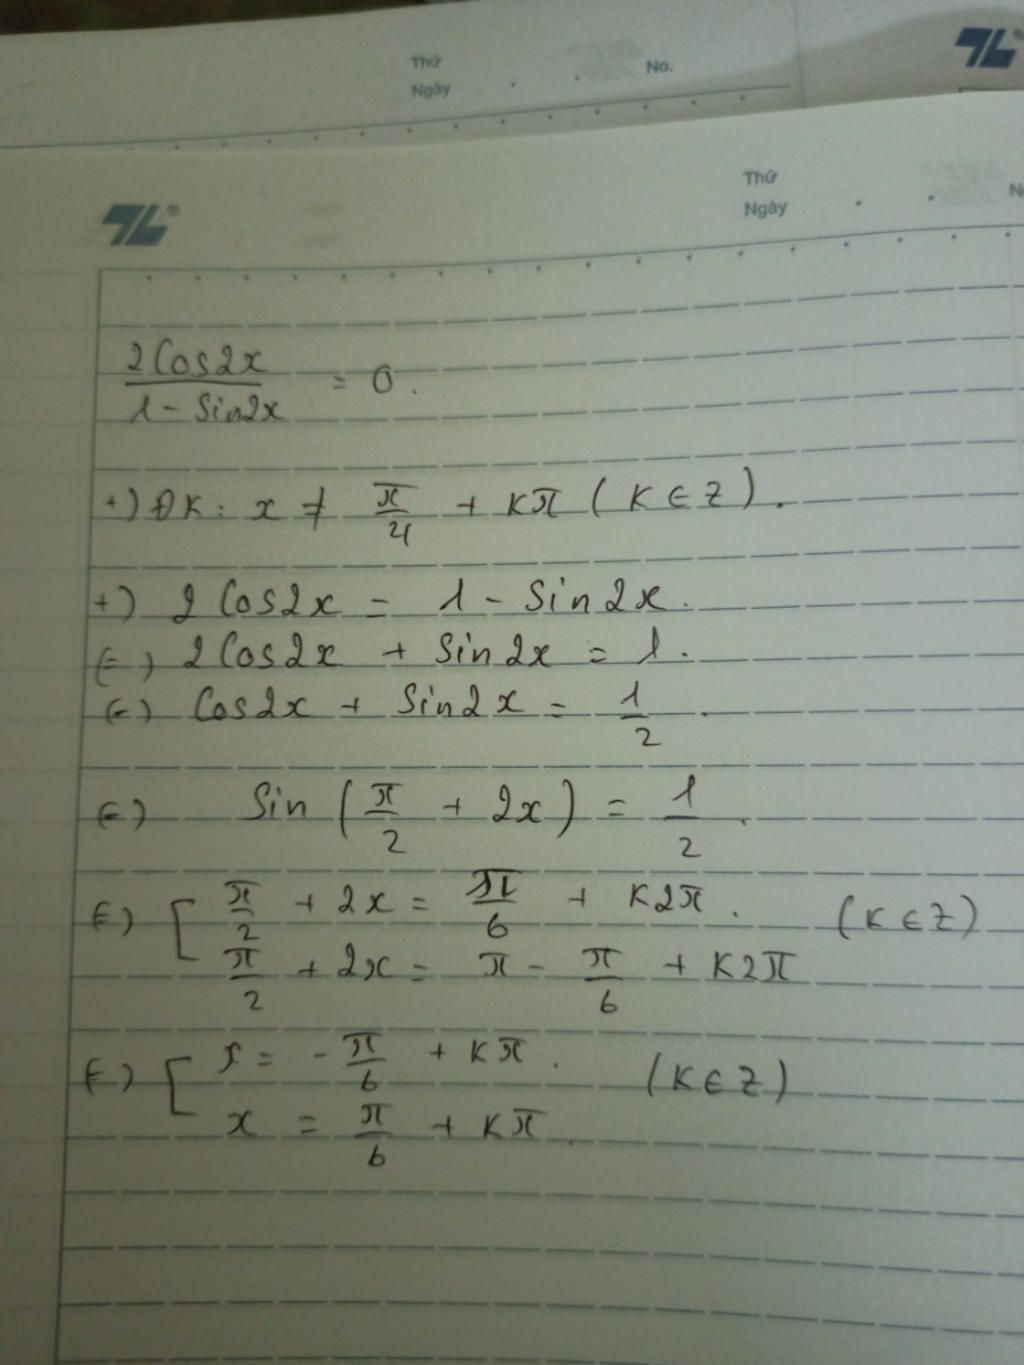 Thứ No.
Ngày
Thứ
Ngày
2Cos2x
1 - Sin2x = 0.
+) ĐK: x ≠ π/4 + Kπ (K ∈ Z).
+) 2Cos2x = 1 - Sin2x.
(=) 2Cos2x + Sin2x = 1.
(=) Cos2x + Sin2x = 1/2.
(=) Sin (π/2 + 2x) = 1/2.
(=) [ π/2 + 2x = π/6 + K2π. (K ∈ Z)
π/2 + 2x = π - π/6 + K2π
(=) [ x = -π/6 + Kπ. (K ∈ Z)
x = π/6 + Kπ.